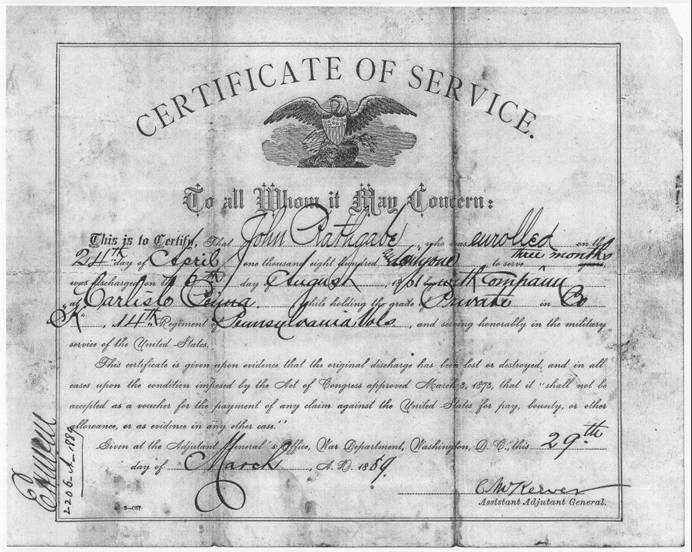 CERTIFICATE OF SERVICE.
To all Whom it May Concern:
This is to Certify, That John Rathgabe, who was enrolled on the
24th day of April, one thousand eight hundred and sixty one to serve three months years,
was discharged on the 6th day of August, 1861 with Company
at Carlisle Penna. while holding the grade of Private in Co
K, 14th Regiment of Pennsylvania Vols., and serving honorably in the military
service of the United States.
This certificate is given upon evidence that the original discharge has been lost or destroyed, and in all
cases upon the condition imposed by the Act of Congress approved March 3, 1873, that it "shall not be
accepted as a voucher for the payment of any claim against the United States for pay, bounty, or other
allowance, or as evidence in any other case."
Given at the Adjutant General's Office, War Department, Washington, D. C., this 29th
day of March, A. D. 1889.
C. McKeever
Assistant Adjutant General.
2206-A-1889